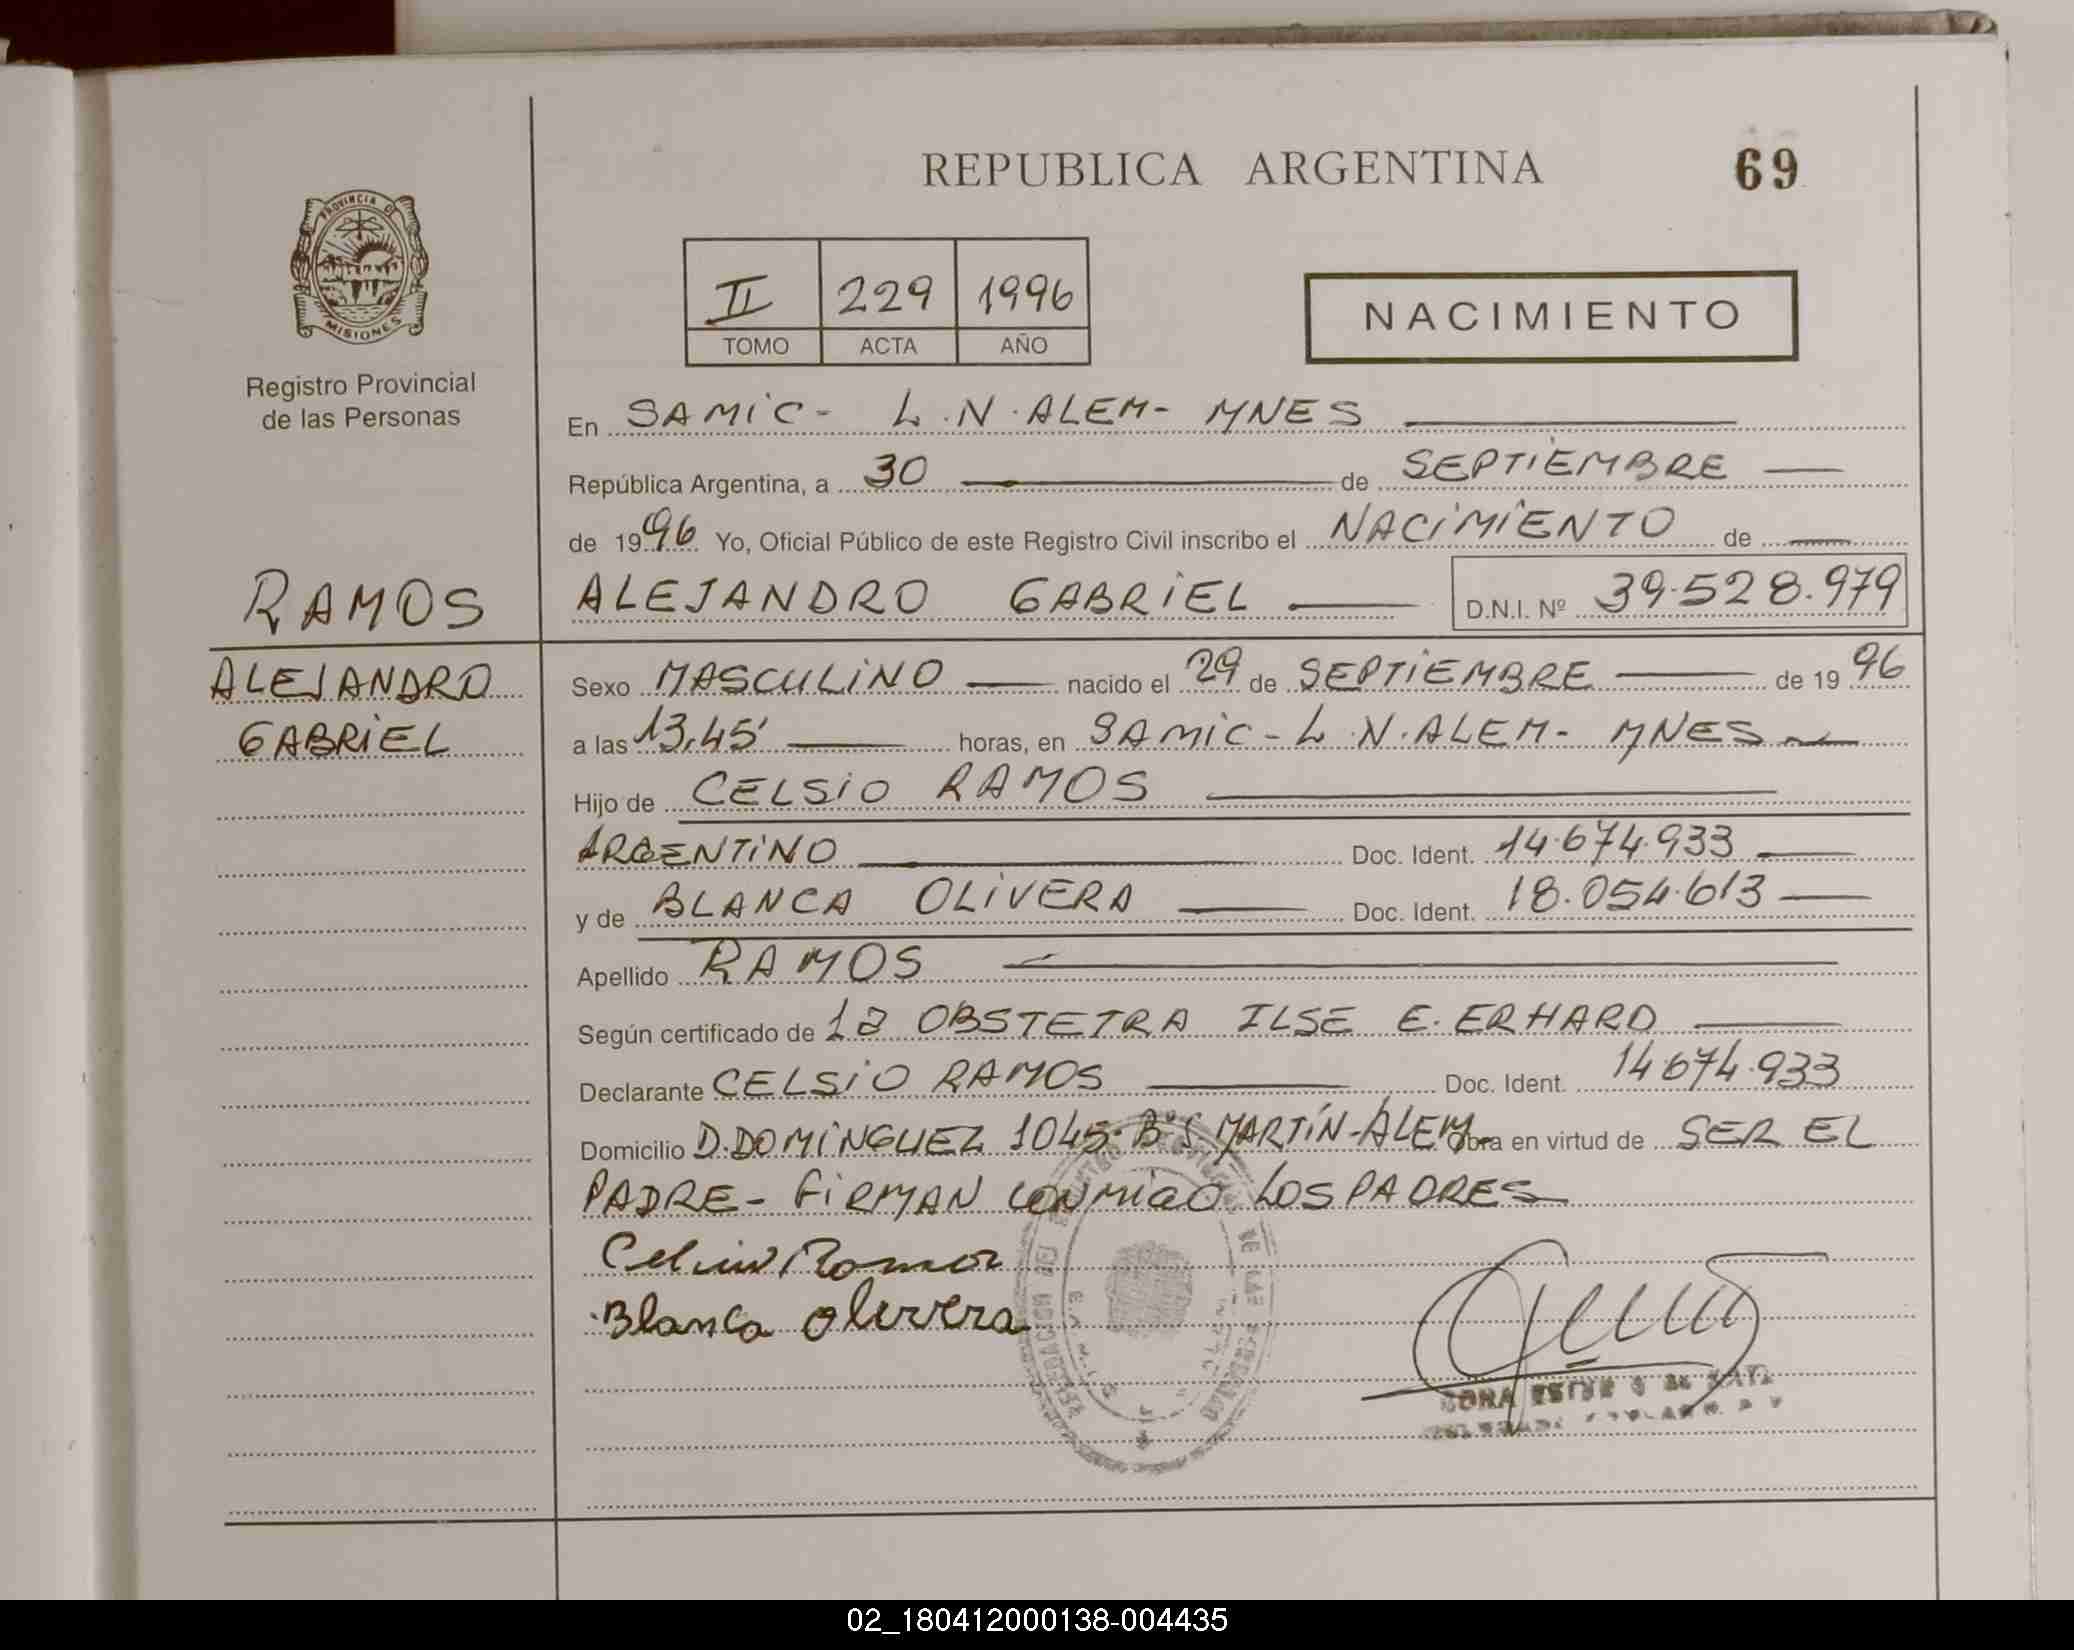 REPUBLICA ARGENTINA
69
PROVINCIA DE
MISIONES
Registro Provincial
de las Personas
II 229 1996
TOMO ACTA AÑO
NACIMIENTO
En SAMIC- L.N.ALEM- MNES
República Argentina, a 30 de SEPTIEMBRE
de 1996 Yo, Oficial Público de este Registro Civil inscribo el NACIMIENTO de
RAMOS
ALEJANDRO GABRIEL
D.N.I. Nº 39.528.979
ALEJANDRO
GABRIEL
Sexo MASCULINO nacido el 29 de SEPTIEMBRE de 1996
a las 13,45' horas, en SAMIC- L.N.ALEM- MNES
Hijo de CELSIO RAMOS
ARGENTINO Doc. Ident. 14.674.933
y de BLANCA OLIVERA Doc. Ident. 18.054.613
Apellido RAMOS
Según certificado de la OBSTETRA ILSE E. ERHARD
Declarante CELSIO RAMOS Doc. Ident. 14.674.933
Domicilio D.DOMINGUEZ 1045-Bº S.MARTÍN-ALEM- Obra en virtud de SER EL
PADRE- FIRMAN CONMIGO LOS PADRES
Ramos
Blanca Olivera
02_180412000138-004435